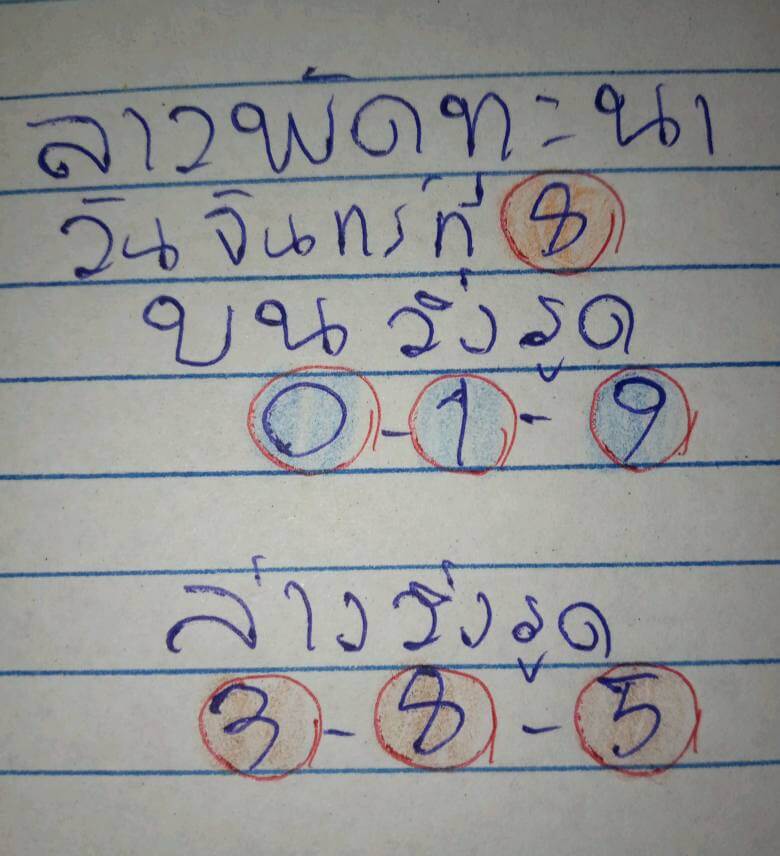 ลาวพัดทะนา
วันจันทร์ที่ 8
บน วิ่งรูด
0-1-9
ล่างวิ่งรูด
3-8-5